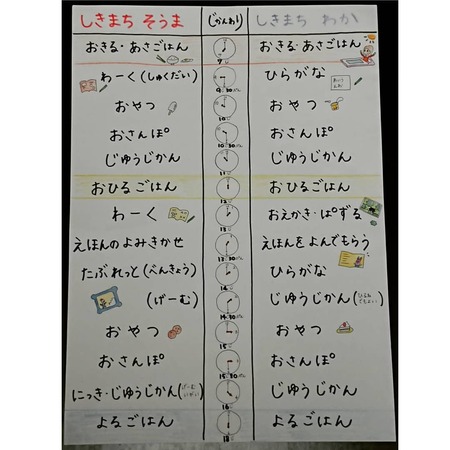 しきまち そうま じかんわり しきまち わか
おきる・あさごはん 7 おきる・あさごはん
わーく(しゅくだい) 9:30 ひらがな
おやつ 10 おやつ
おさんぽ 10:30 おさんぽ
じゆうじかん 11 じゆうじかん
おひるごはん 12 おひるごはん
わーく 13 おえかき・ぱずる
えほんのよみきかせ 13:30 えほんをよんでもらう
たぶれっと(べんきょう) 14 ひらがな
(げーむ) 14:30 じゆうじかん
おやつ 15 おやつ
おさんぽ 15:30 おさんぽ
にっき・じゆうじかん(げーむ 16 じゆうじかん
よるごはん 18 よるごはん